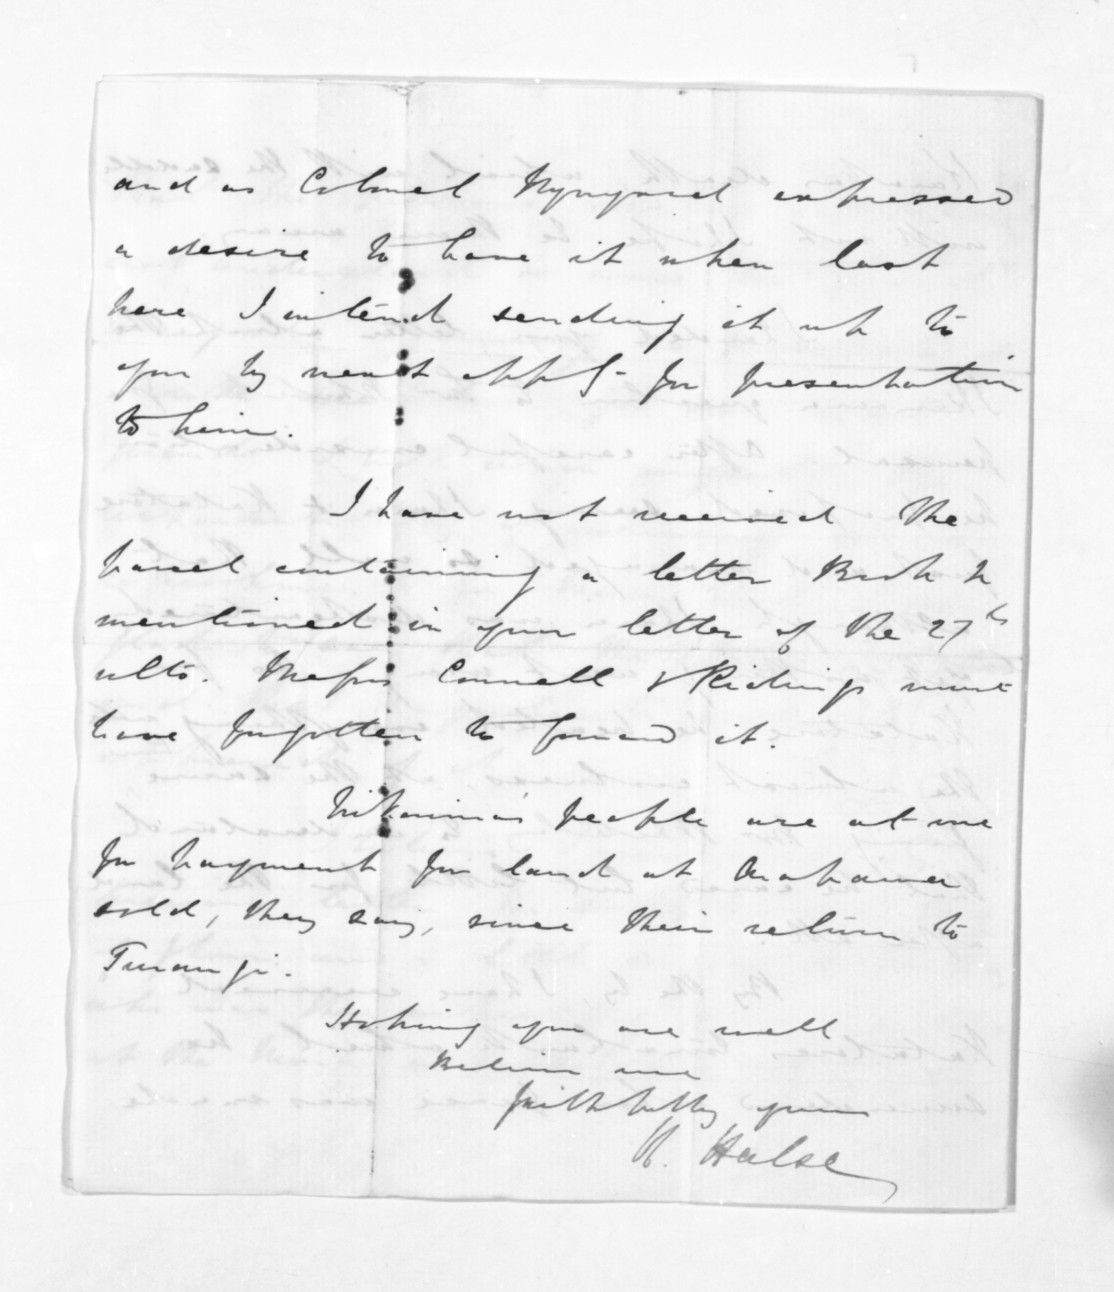 and as Colonel Wynyard expressed
a desire to have it when last
here I intend sending it up to
you by next oppy for presentation
to him.
I have not received the
parcel containing a letter Book &
mentioned in your letter of the 27th
ulto. Messrs Connell & Ridings must
have forgotten to forward it.
people are at me
for payment for land at
sold, they say, since their return to
Turangi.
Hoping you are well
Believe me
faithfully yours
H. Halse